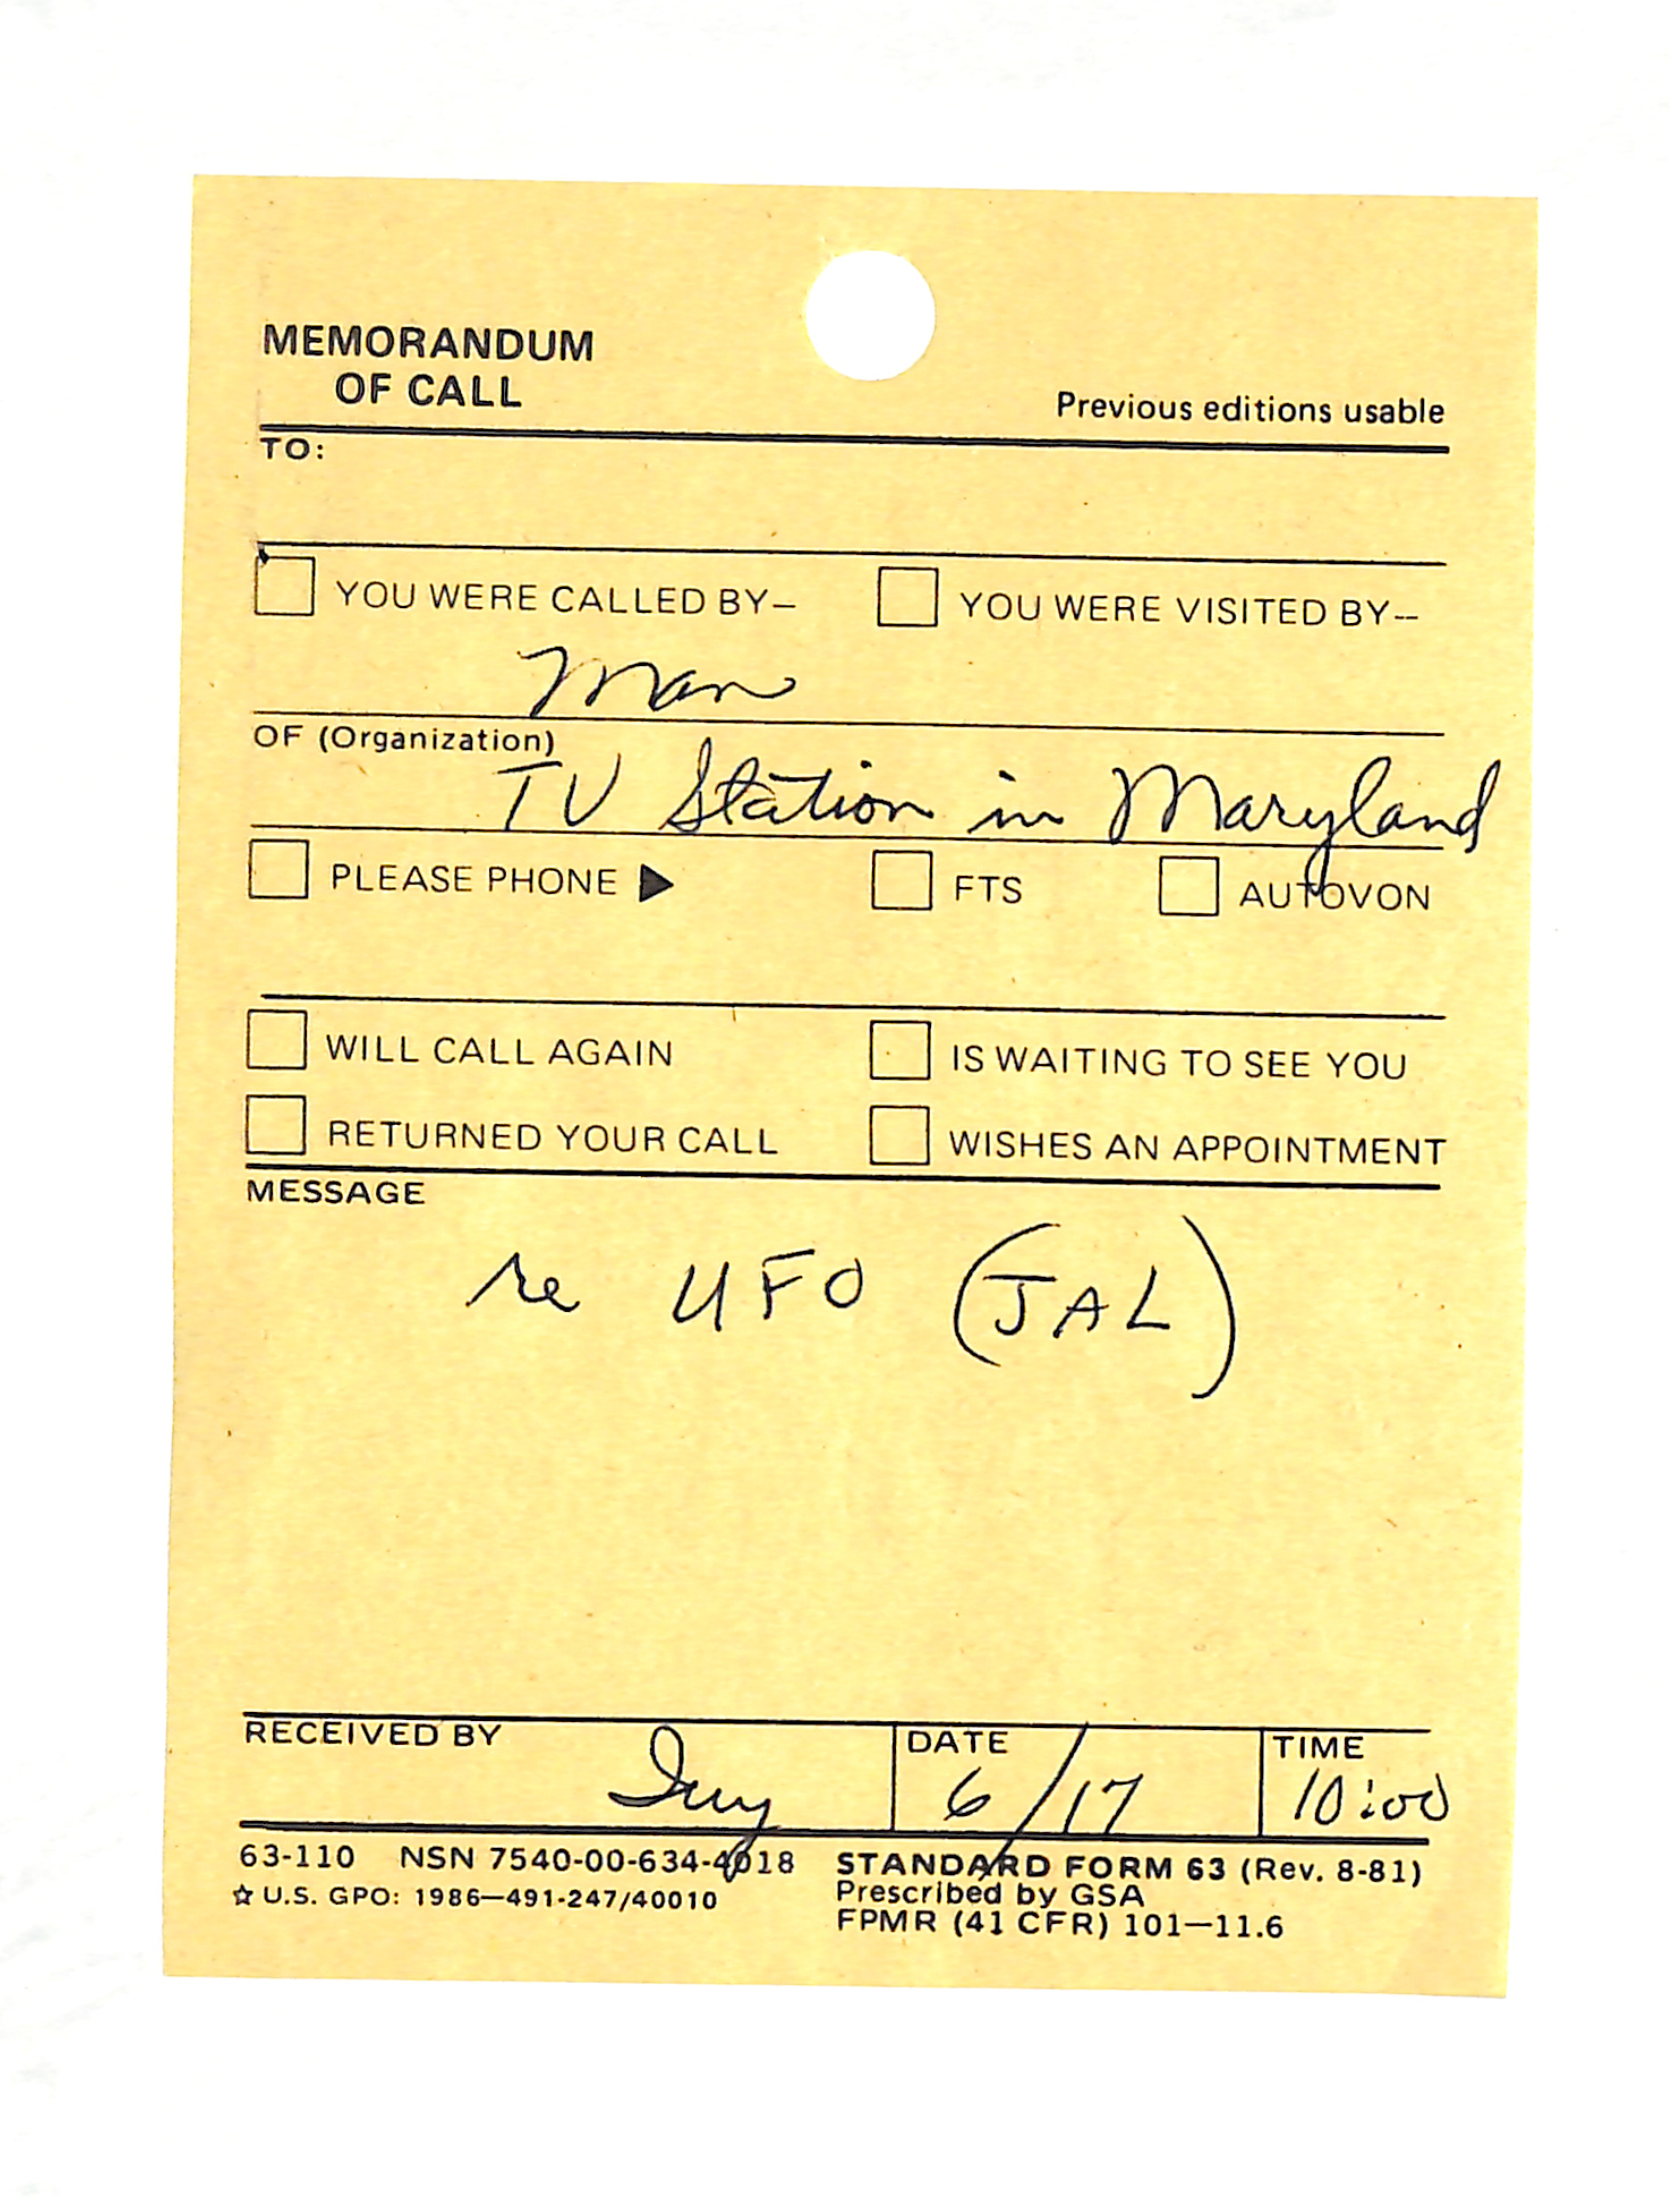 MEMORANDUM
OF CALL
Previous editions usable
TO:
YOU WERE CALLED BY– YOU WERE VISITED BY--
Man
OF (Organization)
TV Station in Maryland
PLEASE PHONE ▶ FTS AUTOVON
WILL CALL AGAIN IS WAITING TO SEE YOU
RETURNED YOUR CALL WISHES AN APPOINTMENT
MESSAGE
re UFO (JAL)
RECEIVED BY DATE TIME
6/17 10:00
63-110 NSN 7540-00-634-4018 STANDARD FORM 63 (Rev. 8-81)
☆ U.S. GPO: 1986—491-247/40010 Prescribed by GSA
FPMR (41 CFR) 101—11.6